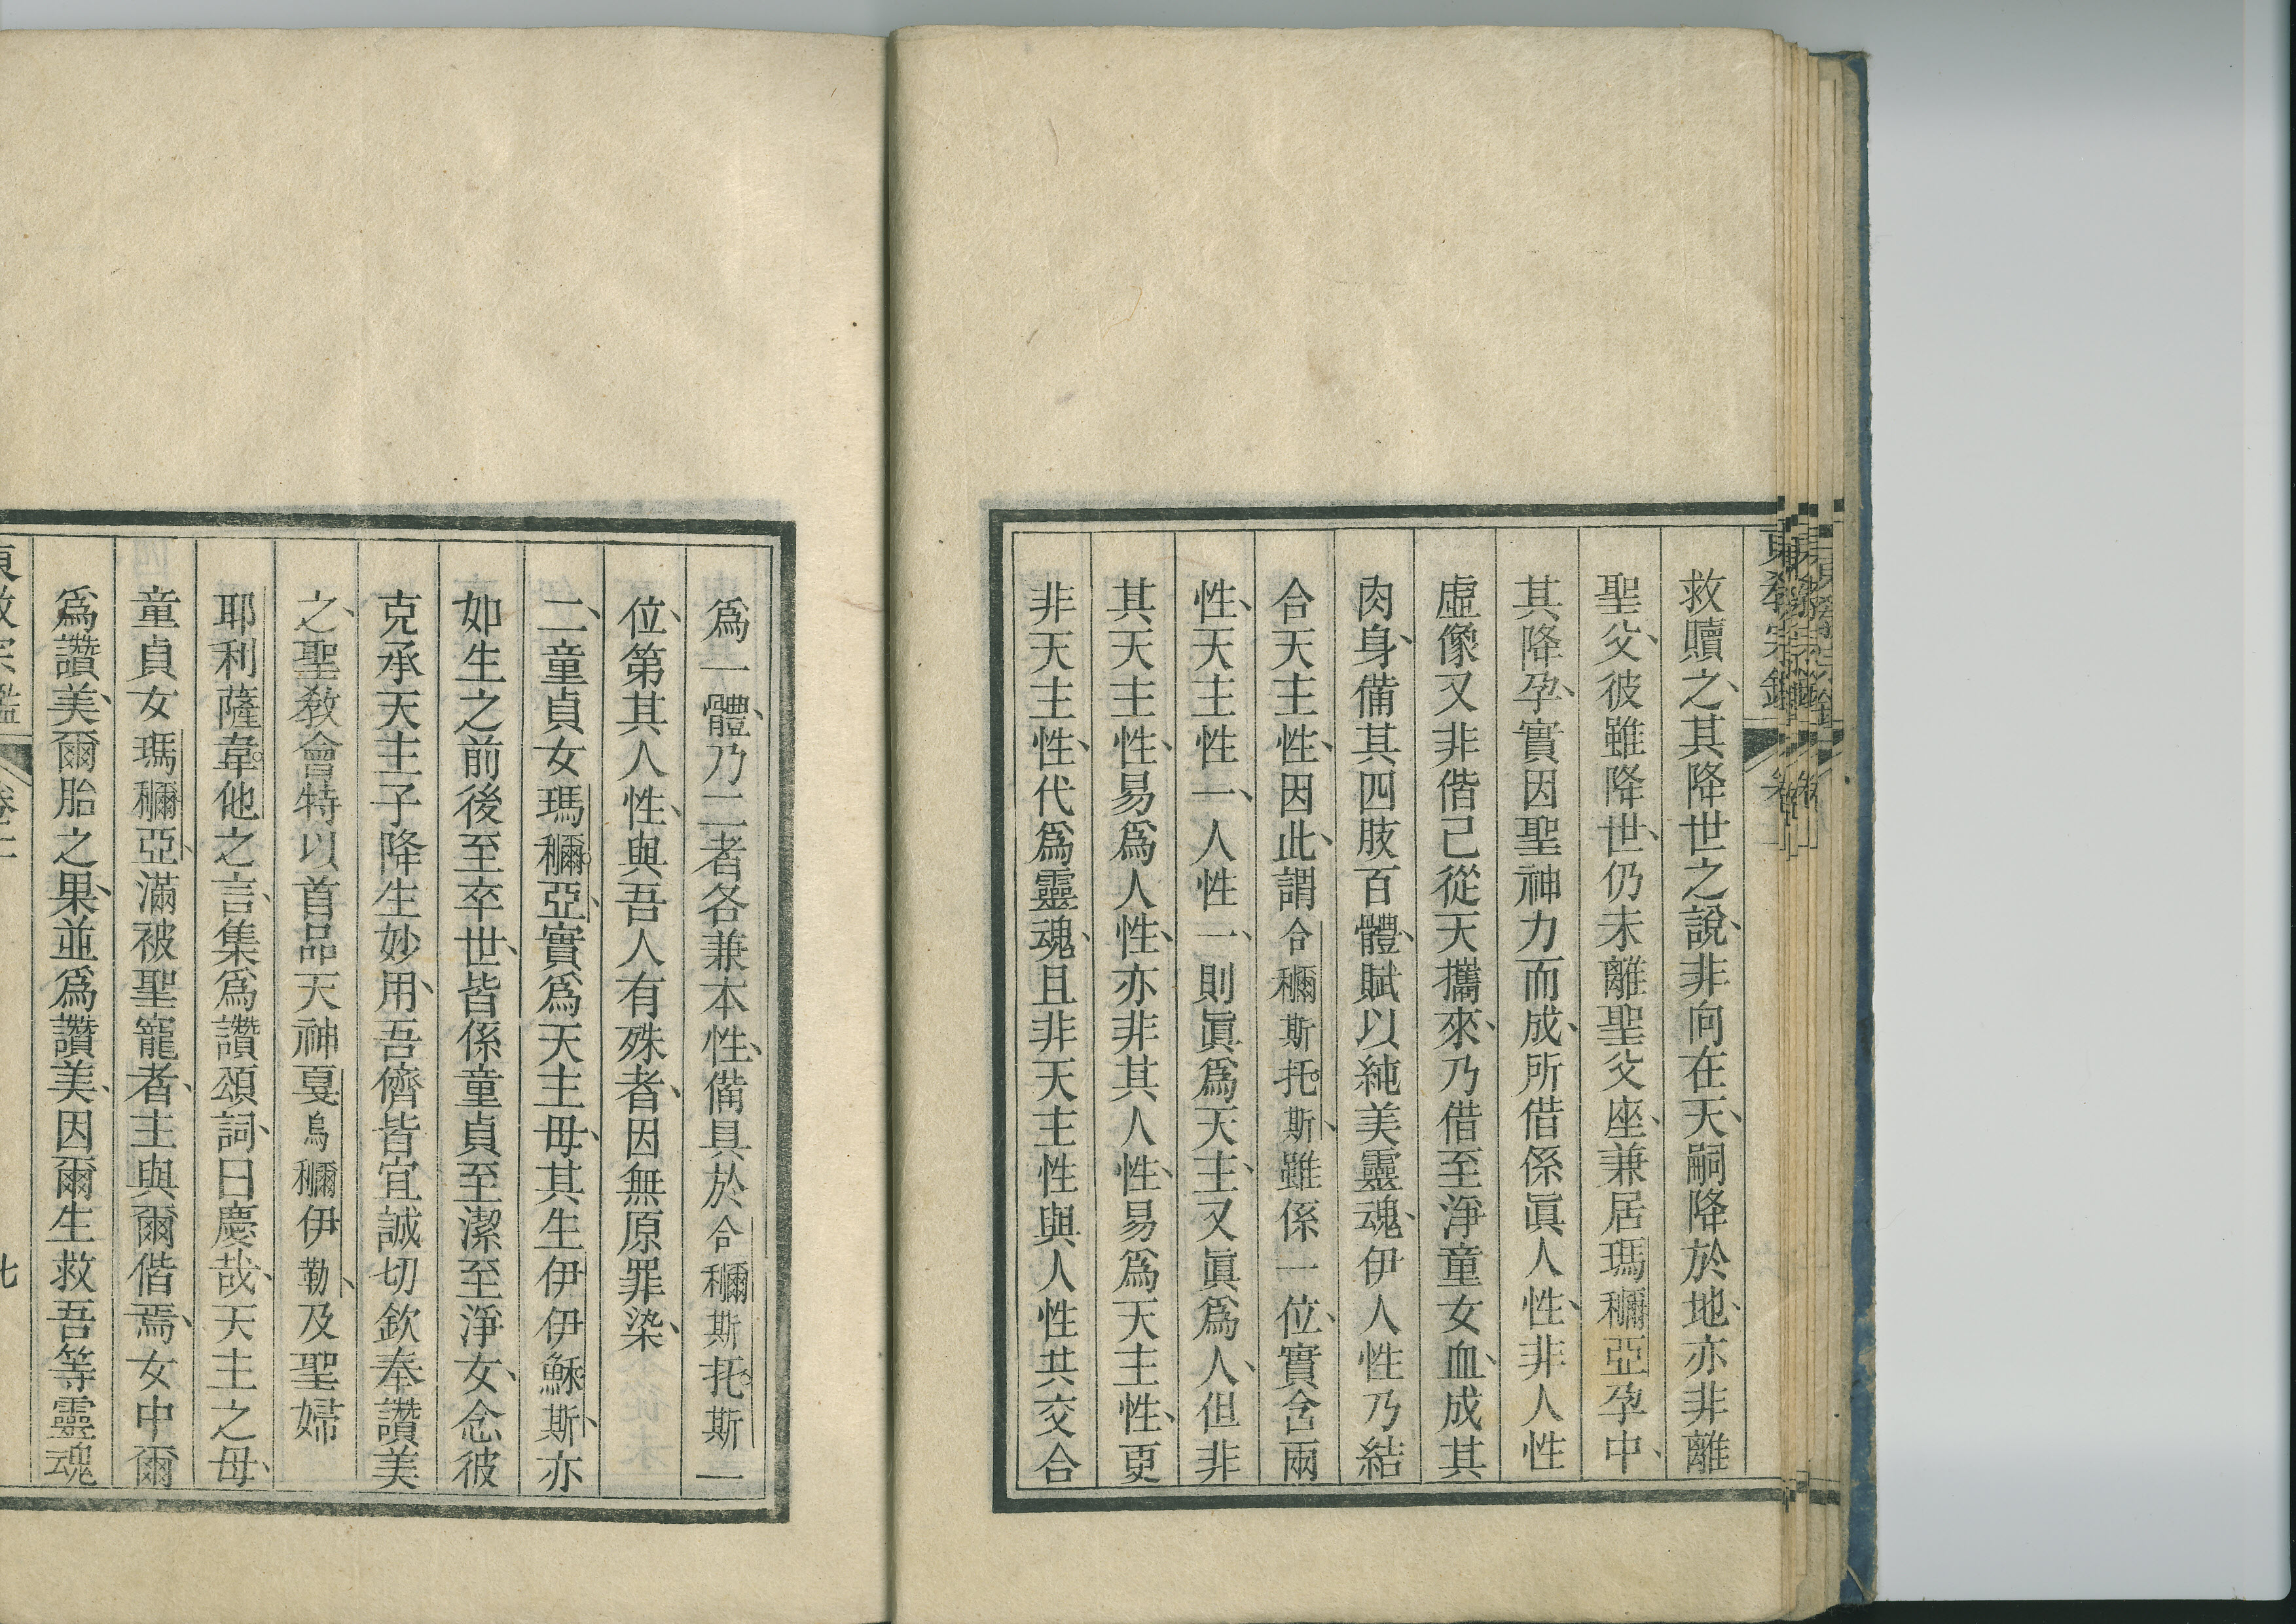 救贖之、其降世之說、非向在天、嗣降於地、亦非離
聖父、彼雖降世、仍未離聖父座、兼居瑪穪亞孕中、
其降孕、實因聖神力而成、所借係眞人性、非人性
虛像又非偕己從天攜來、乃借至淨童女血、成其
肉身、備其四肢百體、賦以純美靈魂、伊人性乃結
合天主性、因此、謂合穪斯托斯、雖係一位、實含兩
性、天主性一、人性一、則眞爲天主、又眞爲人、但非
其天主性、易爲人性、亦非其人性、易爲天主性、更
非天主性、代爲靈魂、且非天主性與人性共交合
爲一體、乃二者各兼本性、備具於合穪斯托斯一
位、第其人性、與吾人有殊者、因無原罪染、
二、童貞女瑪穪亞、實爲天主母、其生伊伊穌斯、亦
如生之前後至卒世、皆係童貞至潔至淨女、念彼
克承天主子降生妙用、吾儕皆宜誠切欽奉讚美
之、聖敎會特以首品天神戛烏穪伊勒、及聖婦
耶利薩韋他之言、集爲讚頌詞、曰慶哉、天主之母、
童貞女瑪穪亞、滿被聖寵者、主與爾偕焉、女中爾
爲讚美、爾胎之果、並爲讚美、因爾生救吾等靈魂